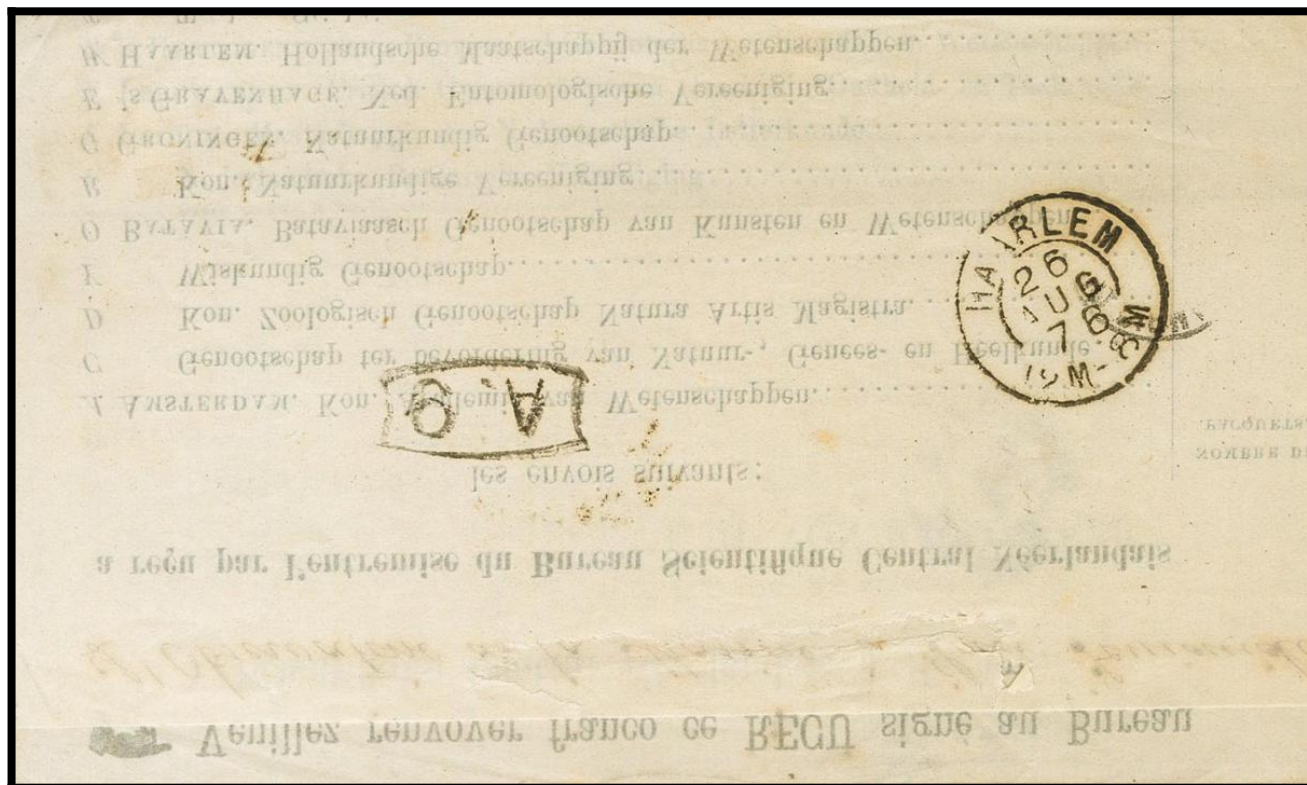 Veuillez renvoyer franco ce REÇU signé au Bureau
a reçu par l'entremise du Bureau Scientifique Central Néerlandais
les envois suivants:
NOMBRE DE
PACQUETS.
A AMSTERDAM. Kon. Akademie van Wetenschappen
C Genootschap ter bevordering van Natuur-, Genees- en Heelkunde.
D Kon. Zoologisch Genootschap Natura Artis Magistra
Wiskundig Genootschap
O BATAVIA. Bataviaasch Genootschap van Kunsten en Wetenschappen
R Kon. Natuurkundige Vereeniging
G GRONINGEN. Natuurkundig Genootschap
E 's GRAVENHAGE. Ned. Entomologische Vereeniging
H HAARLEM. Hollandsche Maatschappij der Wetenschappen
HAARLEM
26
AUG
76
12M-8M